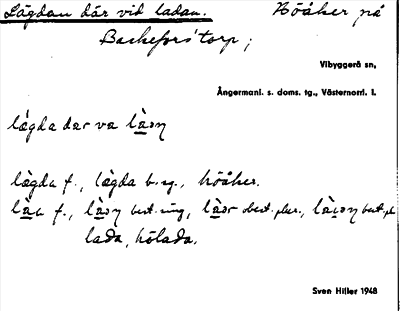 Lägdan där vid ladan. Höåker på
Backefors' torp;
Vibyggerå sn,
Ångermanl. s. doms. tg., Västernorrl. l.
lägda där va
lägda f., lägda b. sg., höåker.
f., best. sing., obest. plur., best. pl
lada, hölada.
Sven Hiller 1948